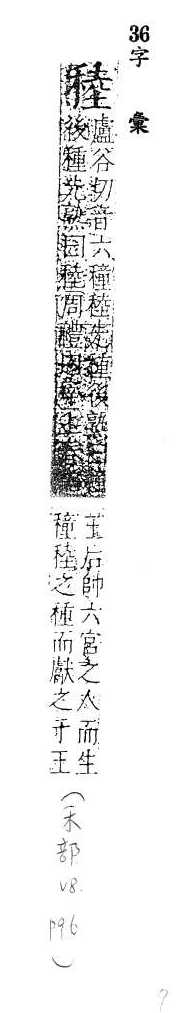 36
字彙
稑
盧谷切音六穜稑先種後熟曰穜
後種先熟曰稑周禮
王后帥六宮之人而生
穜稑之種而獻之于王
(禾部 V8. P96)
7